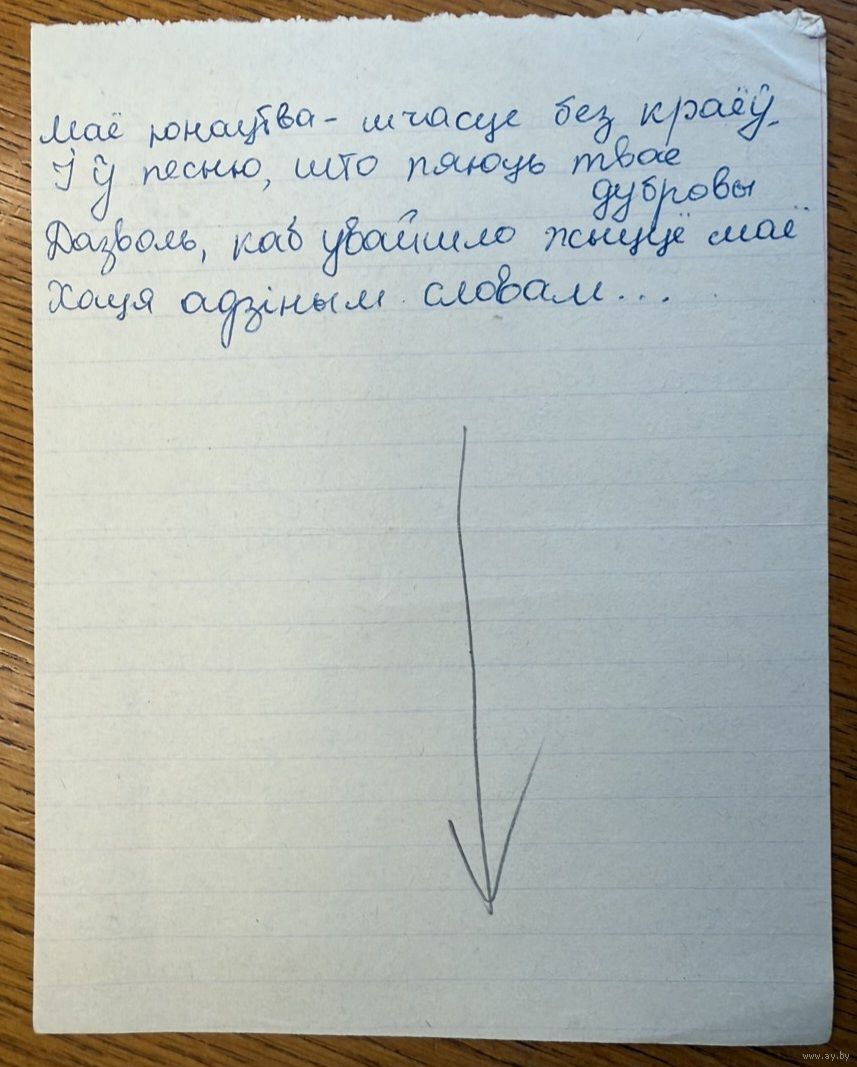 Маё юнацтва - шчасце без краёў.
І ў песню, што пяюць твае
дубровы
Дазволь, каб увайшло жыццё маё
Хаця адзіным словам...
www.ay.by